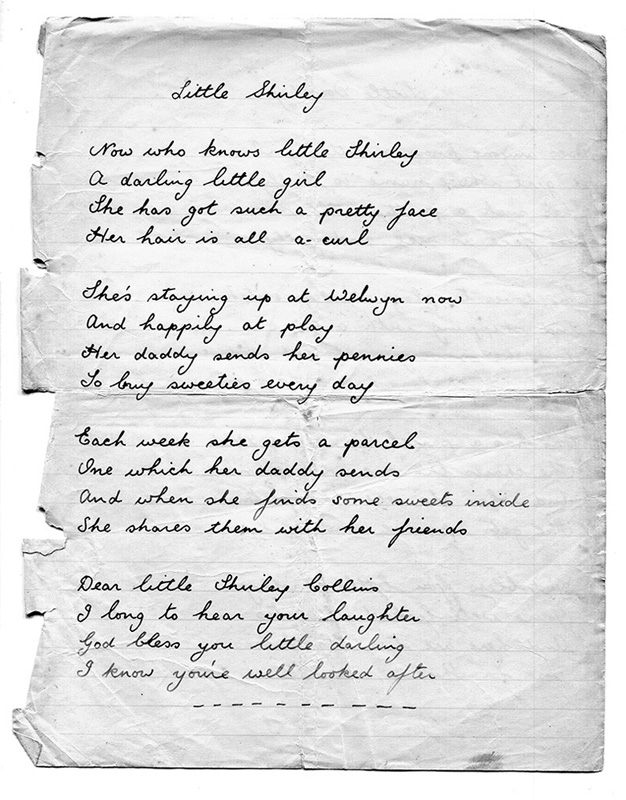 Little Shirley
Now who knows little Shirley
A darling little girl
She has got such a pretty face
Her hair is all a-curl
She's staying up at Welwyn now
And happily at play
Her daddy sends her pennies
To buy sweeties every day
Each week she gets a parcel
One which her daddy sends
And when she finds some sweets inside
She shares them with her friends
Dear little Shirley Collins
I long to hear your laughter
God bless you little darling
I know you're well looked after